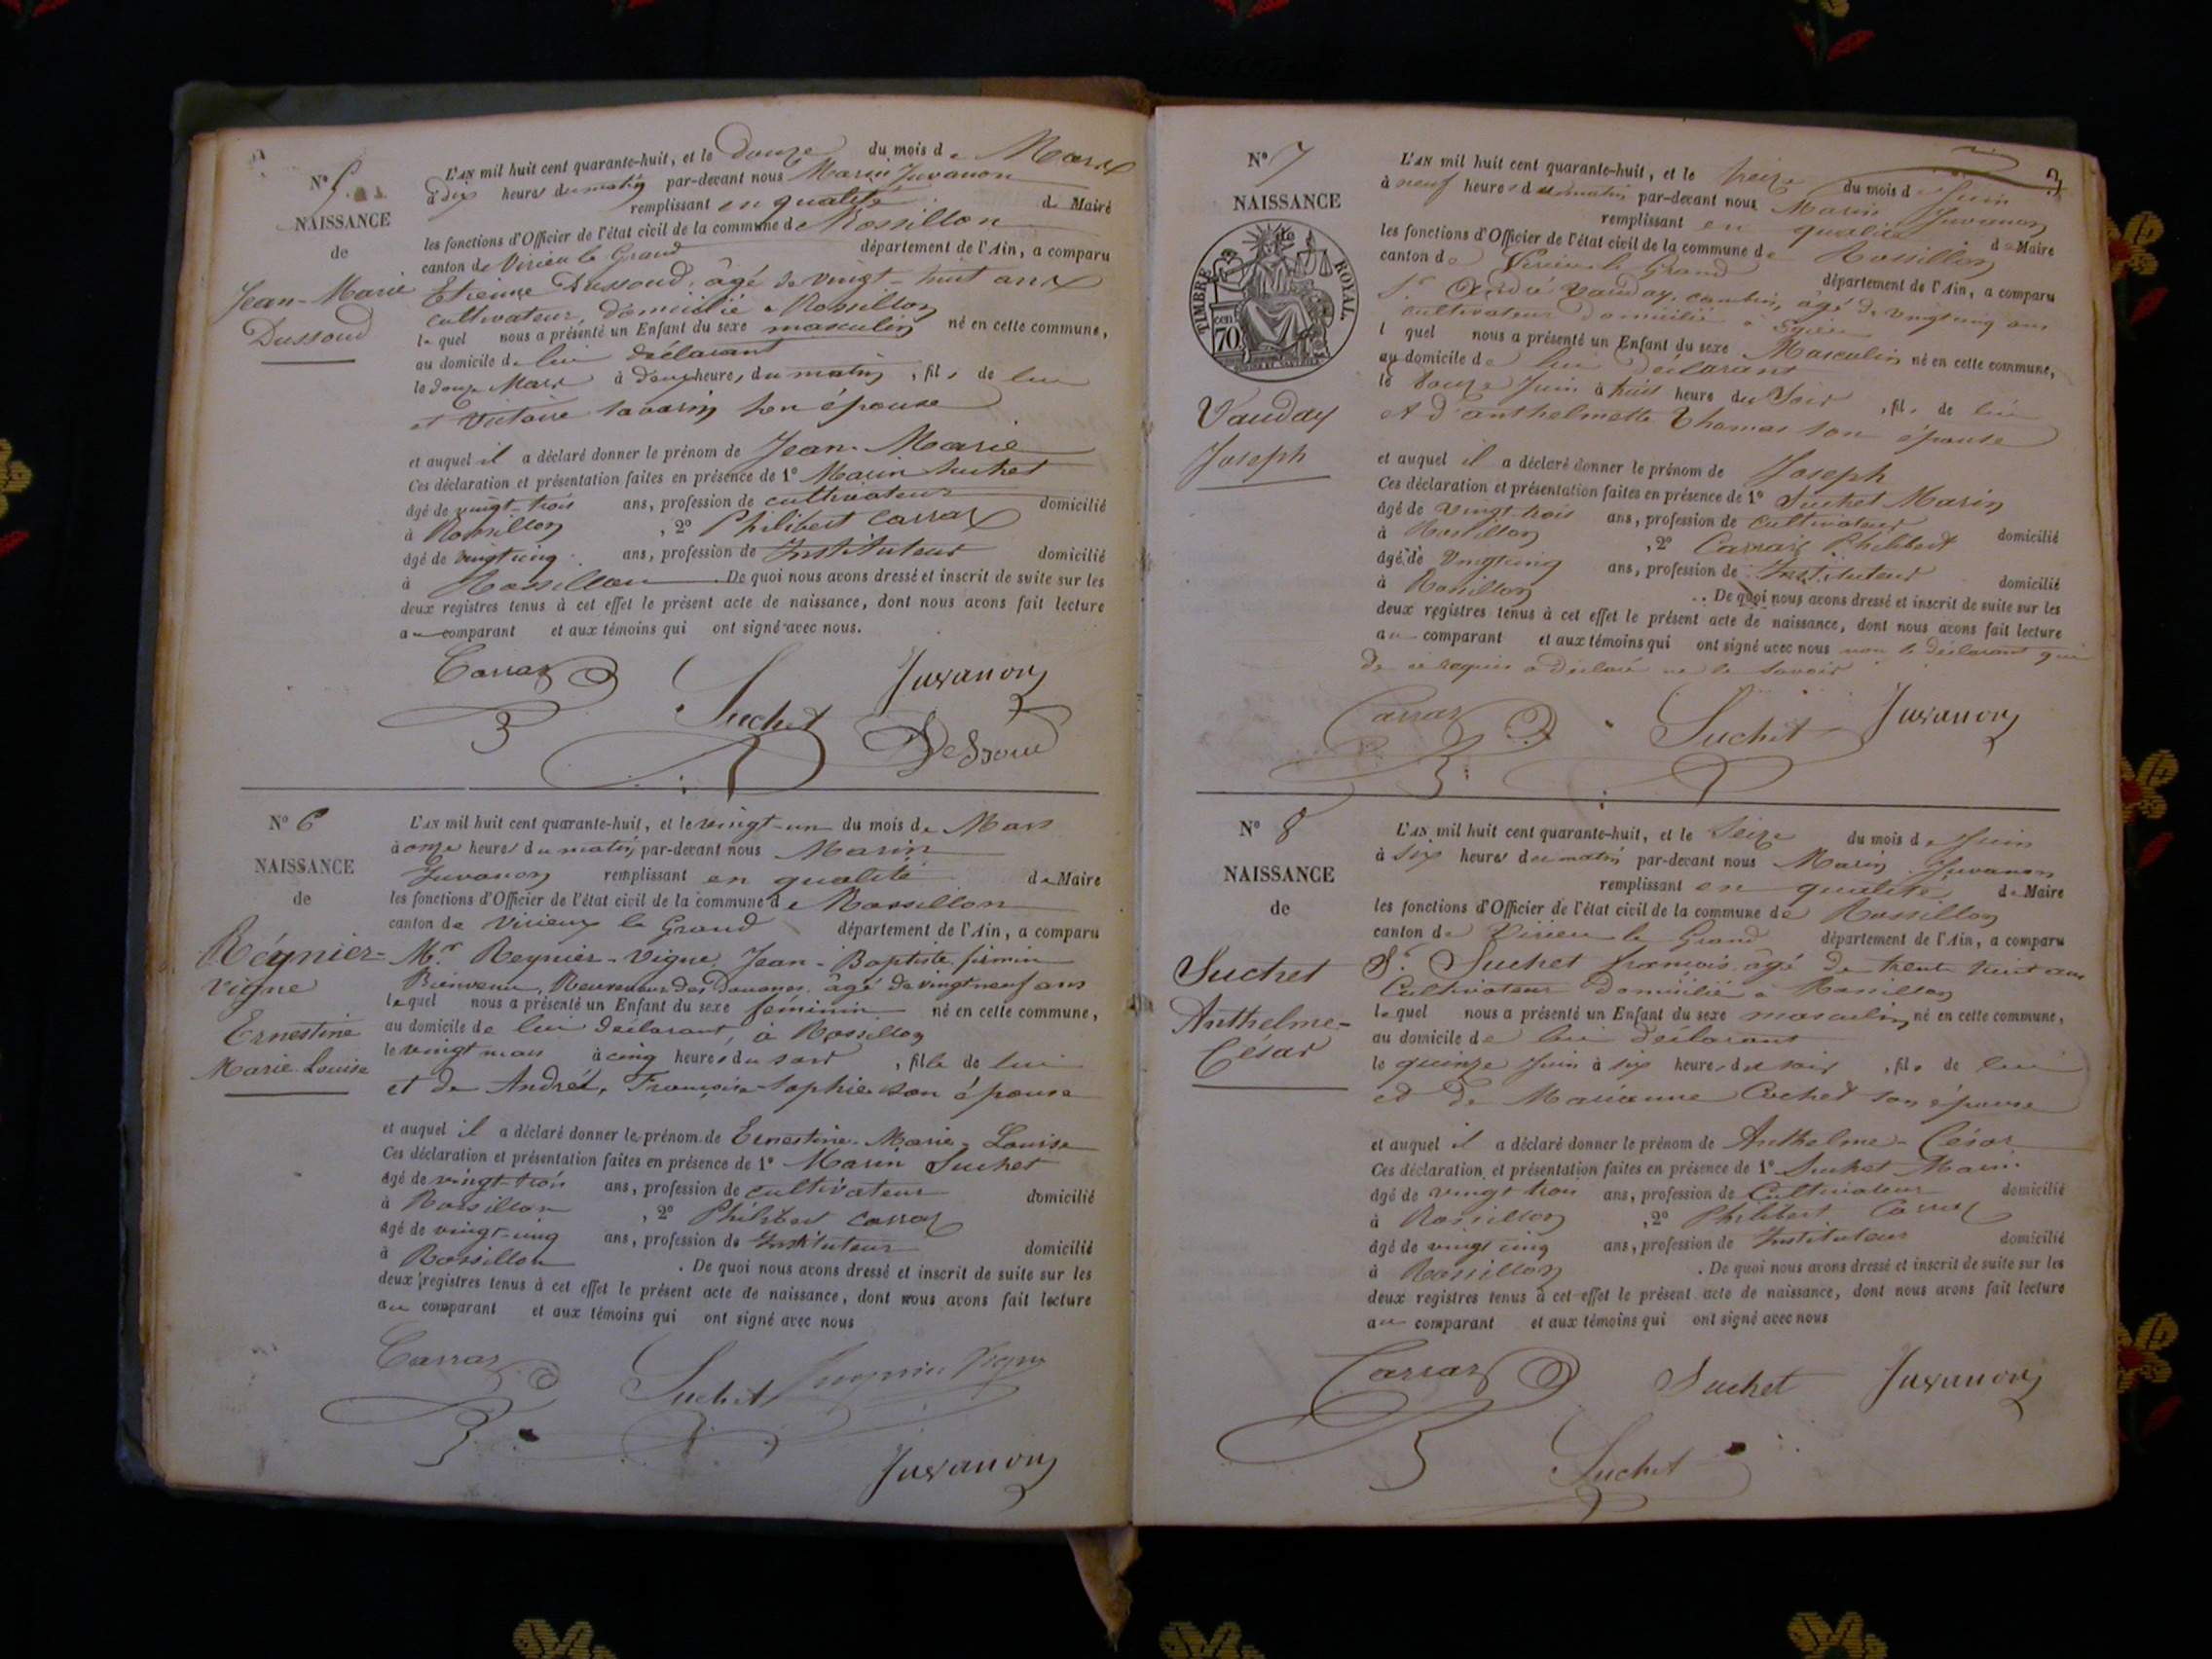 N° 5
NAISSANCE
de
Jean-Marie
Dussoud
L'AN mil huit cent quarante-huit, et le douze du mois de Mars
à dix heures du matin par-devant nous Marin Juvanon
remplissant en qualité de Maire
les fonctions d'Officier de l'état civil de la commune de Rossillon
canton de Virieu le Grand département de l'Ain, a comparu
Etienne Dussoud, âgé de vingt-huit ans
cultivateur, domicilié à Rossillon
lequel nous a présenté un Enfant du sexe masculin né en cette commune,
au domicile de lui déclarant
le douze Mars à deux heures du matin, fils de lui
et Victoire Savarin son épouse
et auquel il a déclaré donner le prénom de Jean-Marie
Ces déclaration et présentation faites en présence de 1° Marin Suchet
âgé de vingt-trois ans, profession de cultivateur domicilié
à Rossillon, 2° Philibert Carraz
âgé de vingt cinq ans, profession de Instituteur domicilié
à Rossillon De quoi nous avons dressé et inscrit de suite sur les
deux registres tenus à cet effet le présent acte de naissance, dont nous avons fait lecture
au comparant et aux témoins qui ont signé avec nous.
Carraz Suchet Juvanon
Dessoud
N° 6
NAISSANCE
de
Réynier-
Vigne
Ernestine
Marie Louise
L'AN mil huit cent quarante-huit, et le vingt-un du mois de Mars
à onze heures du matin, par-devant nous Marin
Juvanon remplissant en qualité de Maire
les fonctions d'Officier de l'état civil de la commune de Rossillon
canton de Virieux le Grand département de l'Ain, a comparu
Mr. Reynier-Vigne, Jean-Baptiste firmin
Bienvenu, Receveur des Douanes, agé de vingt neuf ans
lequel nous a présenté un Enfant du sexe féminin né en cette commune,
au domicile de lui déclarant, à Rossillon
le vingt mars à cinq heures du soir, fille de lui
et de Andréi, Françoise-Sophie son épouse
et auquel il a déclaré donner le prénom de Ernestine-Marie-Louise
Ces déclaration et présentation faites en présence de 1° Marin Suchet
âgé de vingt-trois ans, profession de cultivateur domicilié
à Rossillon, 2° Philibert Carraz
âgé de vingt-cinq ans, profession de Instituteur domicilié
à Rossillon. De quoi nous avons dressé et inscrit de suite sur les
deux registres tenus à cet effet le présent acte de naissance, dont nous avons fait lecture
au comparant et aux témoins qui ont signé avec nous
Carraz Suchet Reynier Vigne
Juvanon
3
N° 7
NAISSANCE
de
TIMBRE ROYAL
70 cen
Vauday
Joseph
L'AN mil huit cent quarante-huit, et le treize du mois de Juin
à neuf heures du matin par-devant nous Marin Juvanon
remplissant en qualité de Maire
les fonctions d'Officier de l'état civil de la commune de Rossillon
canton de Virieu le Grand département de l'Ain, a comparu
Sr. André Vauday, âgé de vingt cinq ans
cultivateur domicilié à
lquel nous a présenté un Enfant du sexe Masculin né en cette commune,
au domicile de lui déclarant
le douze Juin à huit heure du Soir, fils de lui
et d'anthelmette Thomas son épouse
et auquel il a déclaré donner le prénom de Joseph
Ces déclaration et présentation faites en présence de 1° Suchet Marin
âgé de vingt-trois ans, profession de cultivateur domicilié
à Rossillon, 2° Carraz Philibert
âgé de vingt cinq ans, profession de Instituteur domicilié
à Rossillon. De quoi nous avons dressé et inscrit de suite sur les
deux registres tenus à cet effet le présent acte de naissance, dont nous avons fait lecture
au comparant et aux témoins qui ont signé avec nous non le déclarant qui
de ce requis a déclaré ne le savoir
Carraz Suchet Juvanon
N° 8
NAISSANCE
de
Suchet
Anthelme-
César
L'AN mil huit cent quarante-huit, et le seize du mois de Juin
à six heures du matin par-devant nous Marin Juvanon
remplissant en qualité de Maire
les fonctions d'Officier de l'état civil de la commune de Rossillon
canton de Virieu le Grand département de l'Ain, a comparu
Sr. Suchet francois âgé de trente huit ans
Cultivateur domicilié à Rossillon
lequel nous a présenté un Enfant du sexe masculin né en cette commune,
au domicile de lui déclarant
le quinze Juin à six heures du soir, fils de lui
et de Marianne Cochet son épouse
et auquel il a déclaré donner le prénom de Anthelme-César
Ces déclaration et présentation faites en présence de 1° Suchet Marin
âgé de vingt trois ans, profession de Cultivateur domicilié
à Rossillon, 2° Philibert Carraz
âgé de vingt cinq ans, profession de Instituteur domicilié
à Rossillon. De quoi nous avons dressé et inscrit de suite sur les
deux registres tenus à cet effet le présent acte de naissance, dont nous avons fait lecture
au comparant et aux témoins qui ont signé avec nous
Carraz Suchet Juvanon
Suchet